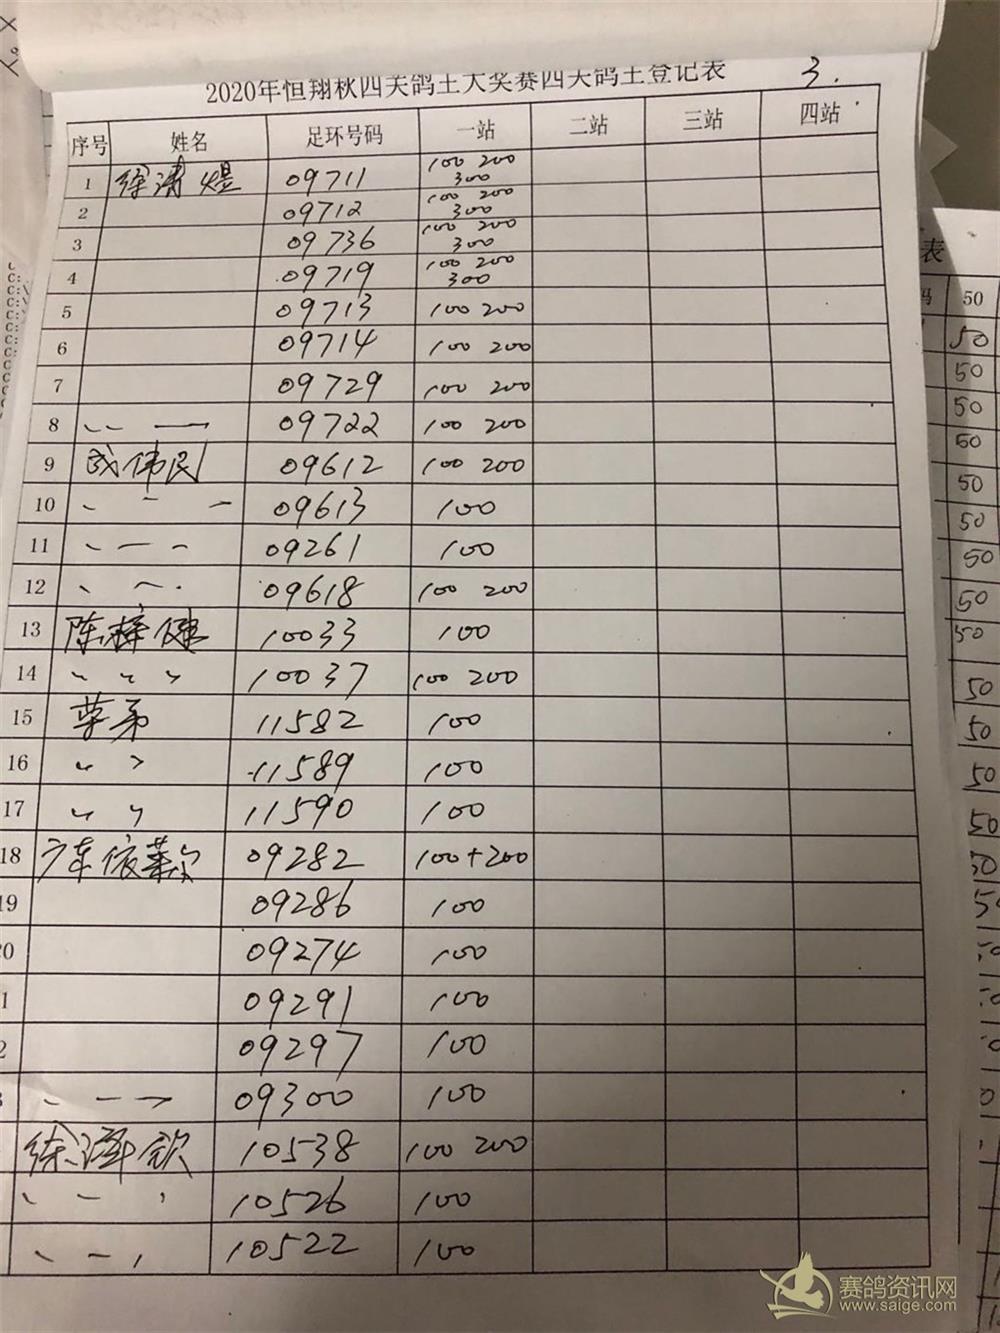 3.
2020年恒翔秋四关鸽王大奖赛四关鸽王登记表
序号 姓名 足环号码 一站 二站 三站 四站
1 徐清煜 09711 100 200 300
2 09712 100 200 300
3 09736 100 200 300
4 09719 100 200 300
5 09713 100 200
6 09714 100 200
7 09729 100 200
8 09722 100 200
9 成伟民 09612 100 200
10 09613 100
11 09261 100
12 09618 100 200
13 陈梓健 10033 100
14 10037 100 200
15 11582 100
16 11589 100
17 11590 100
18 广东依莱尔 09282 100+200
19 09286 100
20 09274 100
1 09291 100
2 09297 100
3 09300 100
徐泽钦 10538 100 200
10526 100
10522 100
表
码 50
50
50
50
50
50
50
50
50
50
50
50
50
50
50
赛鸽资讯网
www.saige.com